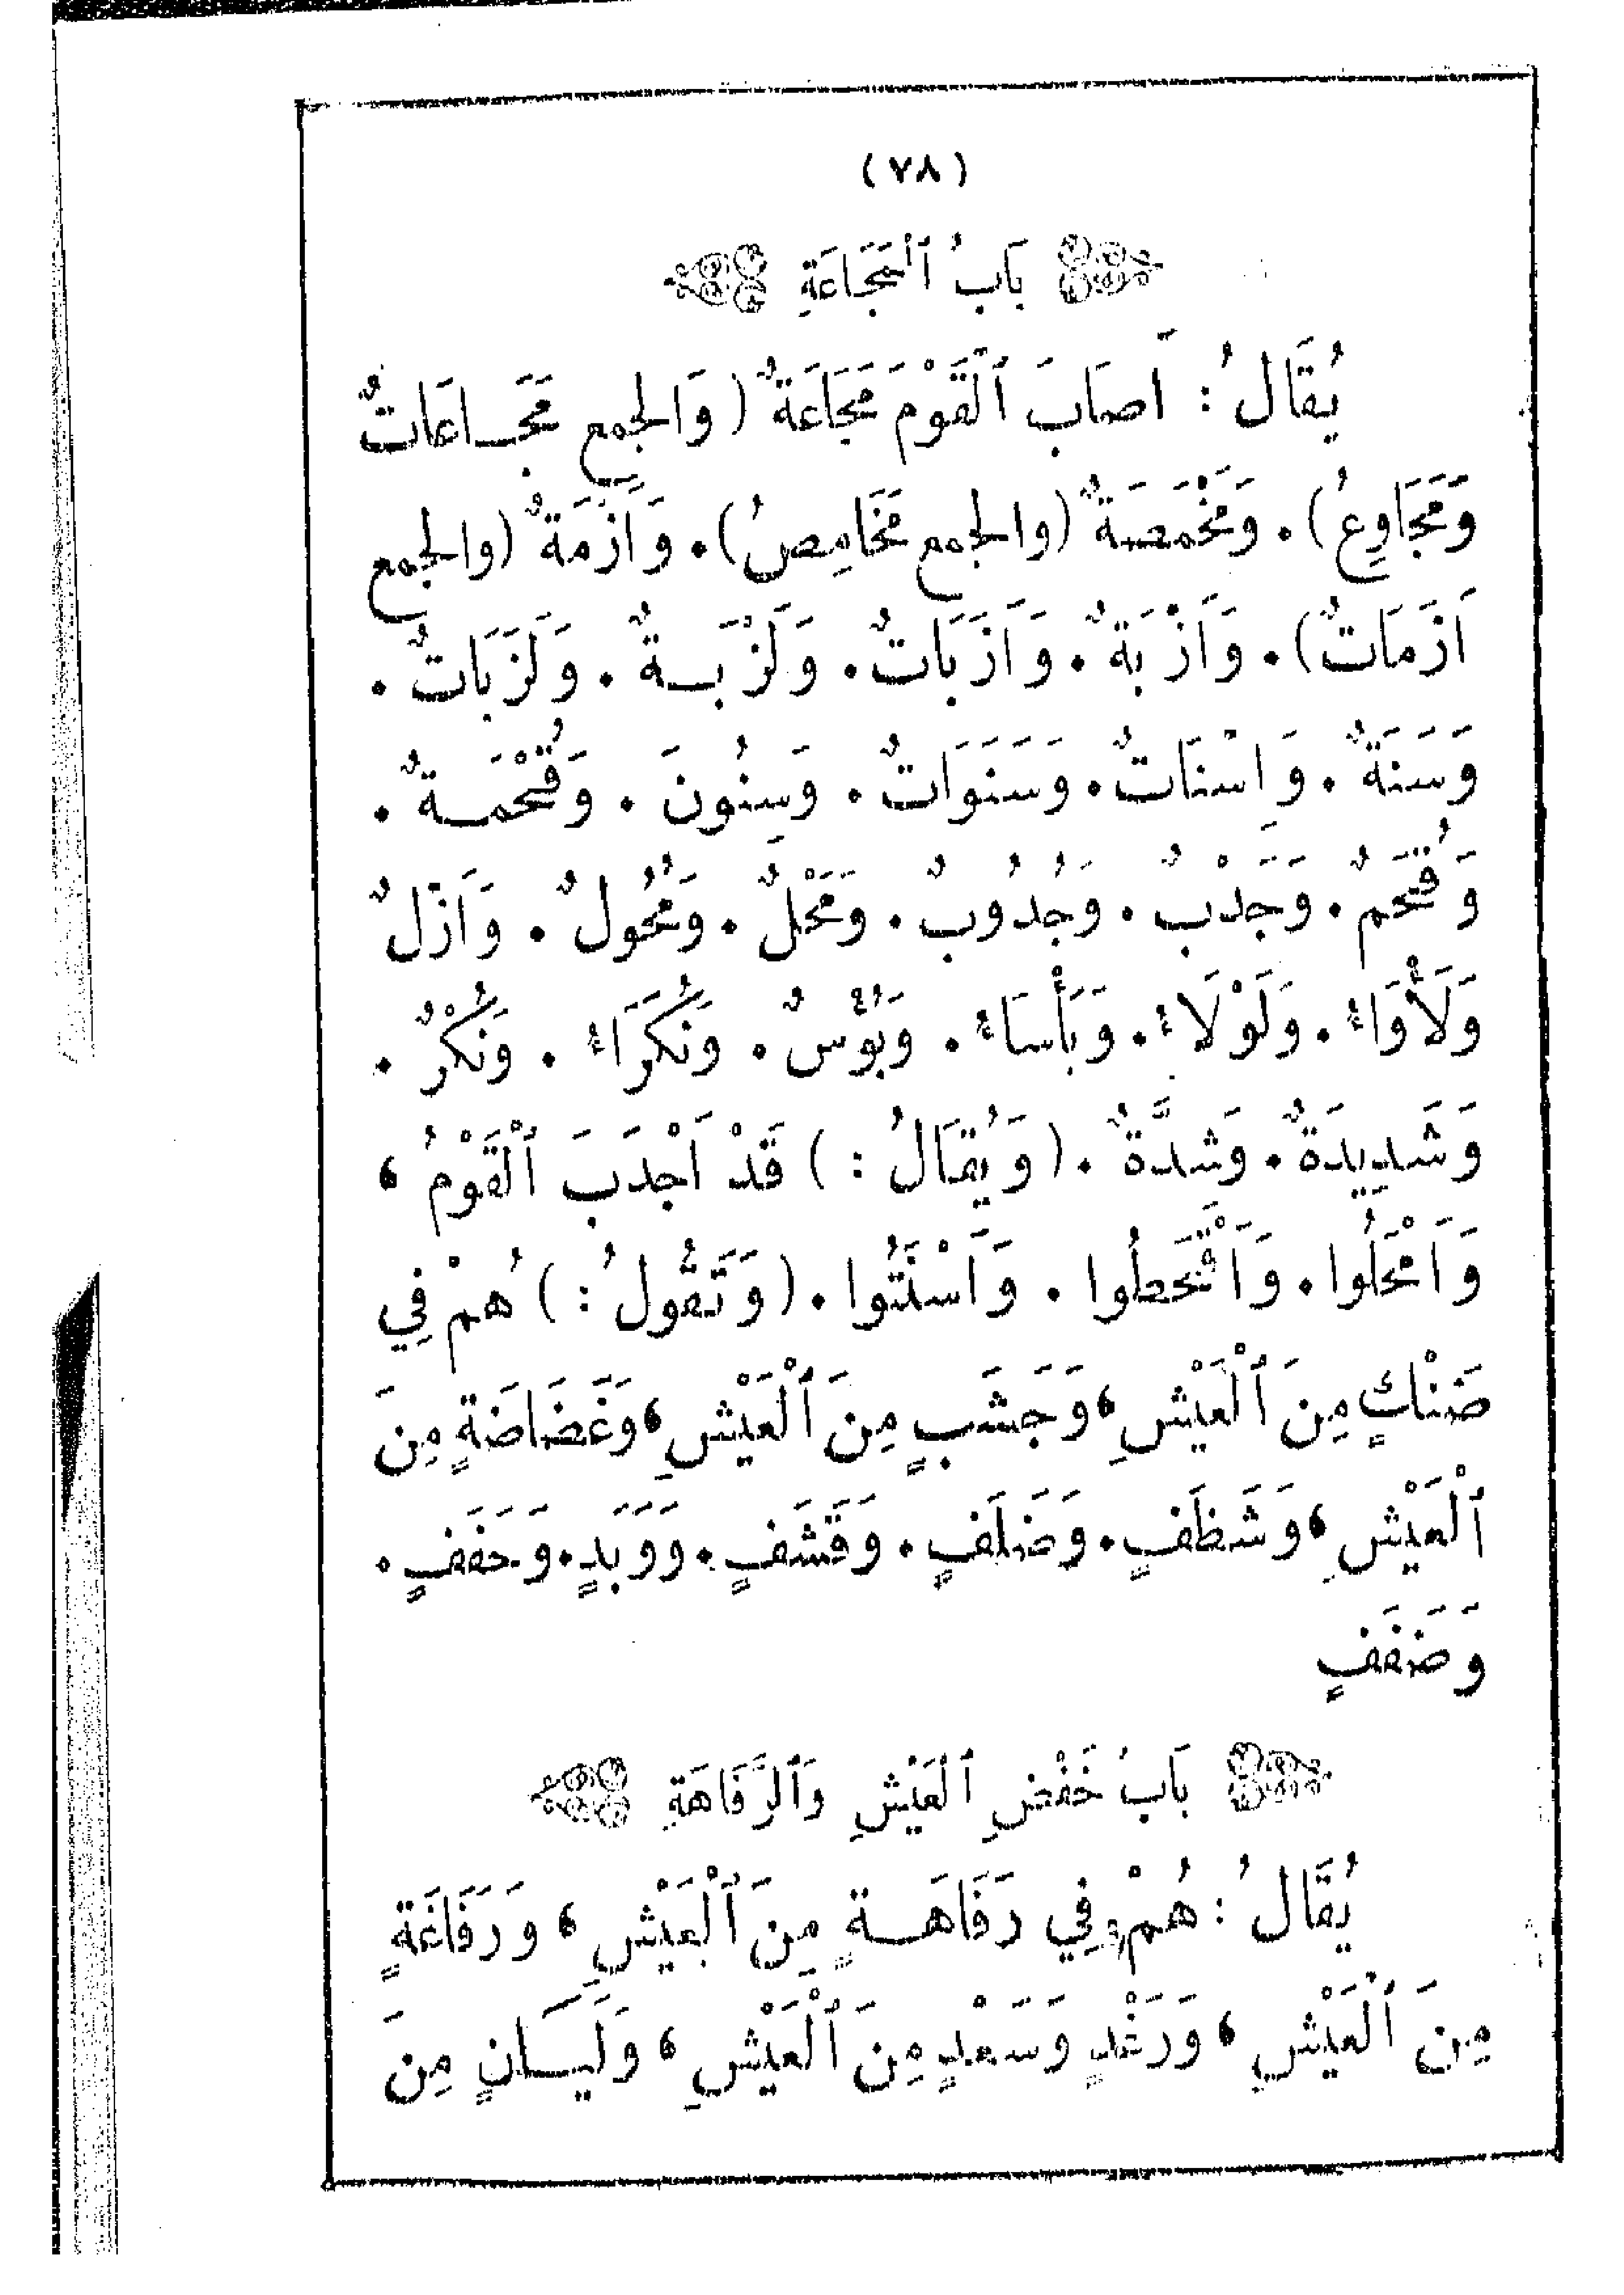 (٧٨)
بَابُ ٱلْمَجَاعَةِ
يُقَالُ: اَصَابَ ٱلْقَوْمَ مَجَاعَةٌ (وَالجمع مَجَاعَاتٌ
وَمَجَاوِعُ). وَمَخْمَصَةٌ (والجمع مَخَامِصُ). وَاَزْمَةٌ (والجمع
اَزَمَاتٌ). وَاَزْبَةٌ. وَاَزَبَاتٌ. وَلَزْبَةٌ. وَلَزَبَاتٌ.
وَسَنَةٌ. وَاِسْنَاتٌ. وَسَنَوَاتٌ. وَسِنُونَ. وَقُحْمَةٌ.
وَقُحَمٌ. وَجَدْبٌ. وَجُدُوبٌ. وَمَحْلٌ. وَمُحُولٌ. وَاَزْلٌ
وَلَأْوَاءُ. وَلَوْلَاءُ. وَبَأْسَاءُ. وَبُؤْسٌ. وَنَكْرَاءُ. وَنُكْرٌ.
وَشَدِيدَةٌ. وَشِدَّةٌ. (وَيُقَالُ:) قَدْ اَجْدَبَ ٱلْقَوْمُ،
وَاَمْحَلُوا. وَاَقْحَطُوا. وَاَسْنَتُوا. (وَتَقُولُ:) هُمْ فِي
ضَنْكٍ مِنَ ٱلْعَيْشِ، وَجَشَبٍ مِنَ ٱلْعَيْشِ، وَغَضَاضَةٍ مِنَ
ٱلْعَيْشِ، وَشَظَفٍ. وَضَلَفٍ. وَقَشَفٍ. وَوَبَدٍ. وَحَفَفٍ.
وَضَفَفٍ
بَابُ خَفْضِ ٱلْعَيْشِ وَٱلرَّفَاهَةِ
يُقَالُ: هُمْ فِي رَفَاهَةٍ مِنَ ٱلْعَيْشِ، وَرَفَاغَةٍ
مِنَ ٱلْعَيْشِ، وَرَغْدٍ وَسَعْدٍ مِنَ ٱلْعَيْشِ، وَلَيَانٍ مِنَ